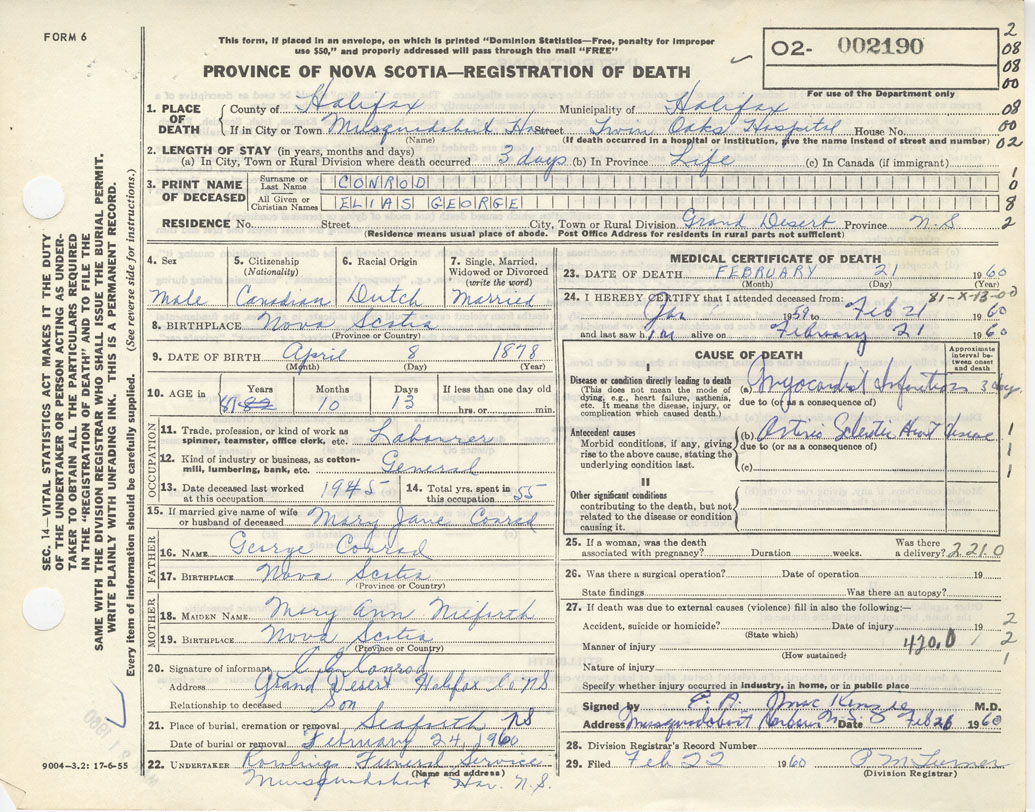 FORM 6
This form, if placed in an envelope, on which is printed "Dominion Statistics—Free, penalty for improper
use $50," and properly addressed will pass through the mail "FREE"
PROVINCE OF NOVA SCOTIA—REGISTRATION OF DEATH
O2- 002190
For use of the Department only
2
08
08
00
08
00
02
1
0
8
2
1. PLACE OF DEATH
County of Halifax Municipality of Halifax
If in City or Town Musquodoboit Har Street Twin Oaks Hospital House No.
(Name) (If death occurred in a hospital or Institution, give the name instead of street and number)
2. LENGTH OF STAY (in years, months and days)
(a) In City, Town or Rural Division where death occurred 3 days (b) In Province Life (c) In Canada (if immigrant)
3. PRINT NAME OF DECEASED
Surname or Last Name CONROD
All Given or Christian Names ELIAS GEORGE
RESIDENCE No. Street City, Town or Rural Division Grand Desert Province N.S
(Residence means usual place of abode. Post Office Address for residents in rural parts not sufficient)
4. Sex 5. Citizenship (Nationality) 6. Racial Origin 7. Single, Married, Widowed or Divorced (write the word)
Male Canadian Dutch Married
8. BIRTHPLACE Nova Scotia
(Province or Country)
9. DATE OF BIRTH April 8 1878
(Month) (Day) (Year)
10. AGE in Years Months Days If less than one day old
81 82 10 13 hrs. or min.
OCCUPATION
11. Trade, profession, or kind of work as spinner, teamster, office clerk, etc. Labourer
12. Kind of industry or business, as cotton-mill, lumbering, bank, etc. General
13. Date deceased last worked at this occupation 1945 14. Total yrs. spent in this occupation 55
15. If married give name of wife or husband of deceased Mary Jane Conrad
FATHER
16. NAME George Conrad
17. BIRTHPLACE Nova Scotia
(Province or Country)
MOTHER
18. MAIDEN NAME Mary Ann Nieforth
19. BIRTHPLACE Nova Scotia
(Province or Country)
20. Signature of informant C.E. Conrod
Address Grand Desert Halifax Co NS
Relationship to deceased Son
21. Place of burial, cremation or removal Seaforth NS
Date of burial or removal February 24, 1960
22. UNDERTAKER Funeral Service
(Name and address)
Musquodoboit Har. N.S.
9004—3.2: 17-6-55
SEC. 14—VITAL STATISTICS ACT MAKES IT THE DUTY
OF THE UNDERTAKER OR PERSON ACTING AS UNDER-
TAKER TO OBTAIN ALL THE PARTICULARS REQUIRED
IN THE "REGISTRATION OF DEATH" AND TO FILE THE
SAME WITH THE DIVISION REGISTRAR WHO SHALL ISSUE THE BURIAL PERMIT.
WRITE PLAINLY WITH UNFADING INK. THIS IS A PERMANENT RECORD.
Every item of information should be carefully supplied. (See reverse side for instructions.)
MEDICAL CERTIFICATE OF DEATH
23. DATE OF DEATH FEBRUARY 21 1960
(Month) (Day) (Year)
81-X-13-00
24. I HEREBY CERTIFY that I attended deceased from:
Jan 1959 to Feb 21 1960
and last saw him alive on February 21 1960
CAUSE OF DEATH
Approximate interval between onset and death
I
Disease or condition directly leading to death
(This does not mean the mode of dying, e.g., heart failure, asthenia, etc. It means the disease, injury, or complication which caused death.)
(a) Myocardial Infarction 3 days
due to (or as a consequence of)
Antecedent causes
Morbid conditions, if any, giving rise to the above cause, stating the underlying condition last.
(b) Heart disease
due to (or as a consequence of)
(c)
1
1
1
II
Other significant conditions
contributing to the death, but not related to the disease or condition causing it.
25. If a woman, was the death associated with pregnancy? Duration weeks. Was there a delivery? 2210
26. Was there a surgical operation? Date of operation 19
State findings Was there an autopsy?
27. If death was due to external causes (violence) fill in also the following:—
Accident, suicide or homicide? Date of injury 19
(State which)
Manner of injury 420.0
(How sustained)
Nature of injury
2
2
1
Specify whether injury occurred in industry, in home, or in public place
Signed by E. A. MacKenzie M.D.
Address Musquodoboit Harbour N.S Date Feb 26 1960
28. Division Registrar's Record Number
29. Filed Feb 22 1960 P M Turner
(Division Registrar)